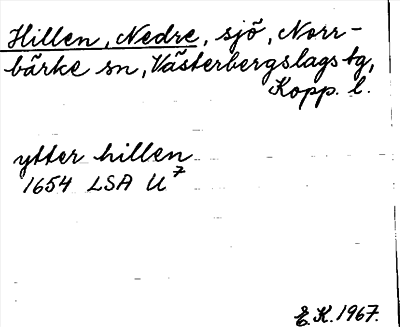 Hillen, Nedre, sjö, Norr-
bärke sn, Västerbergslags tg,
Kopp. l.
ytter hillen
1654 LSA U⁷
E.K. 1967.